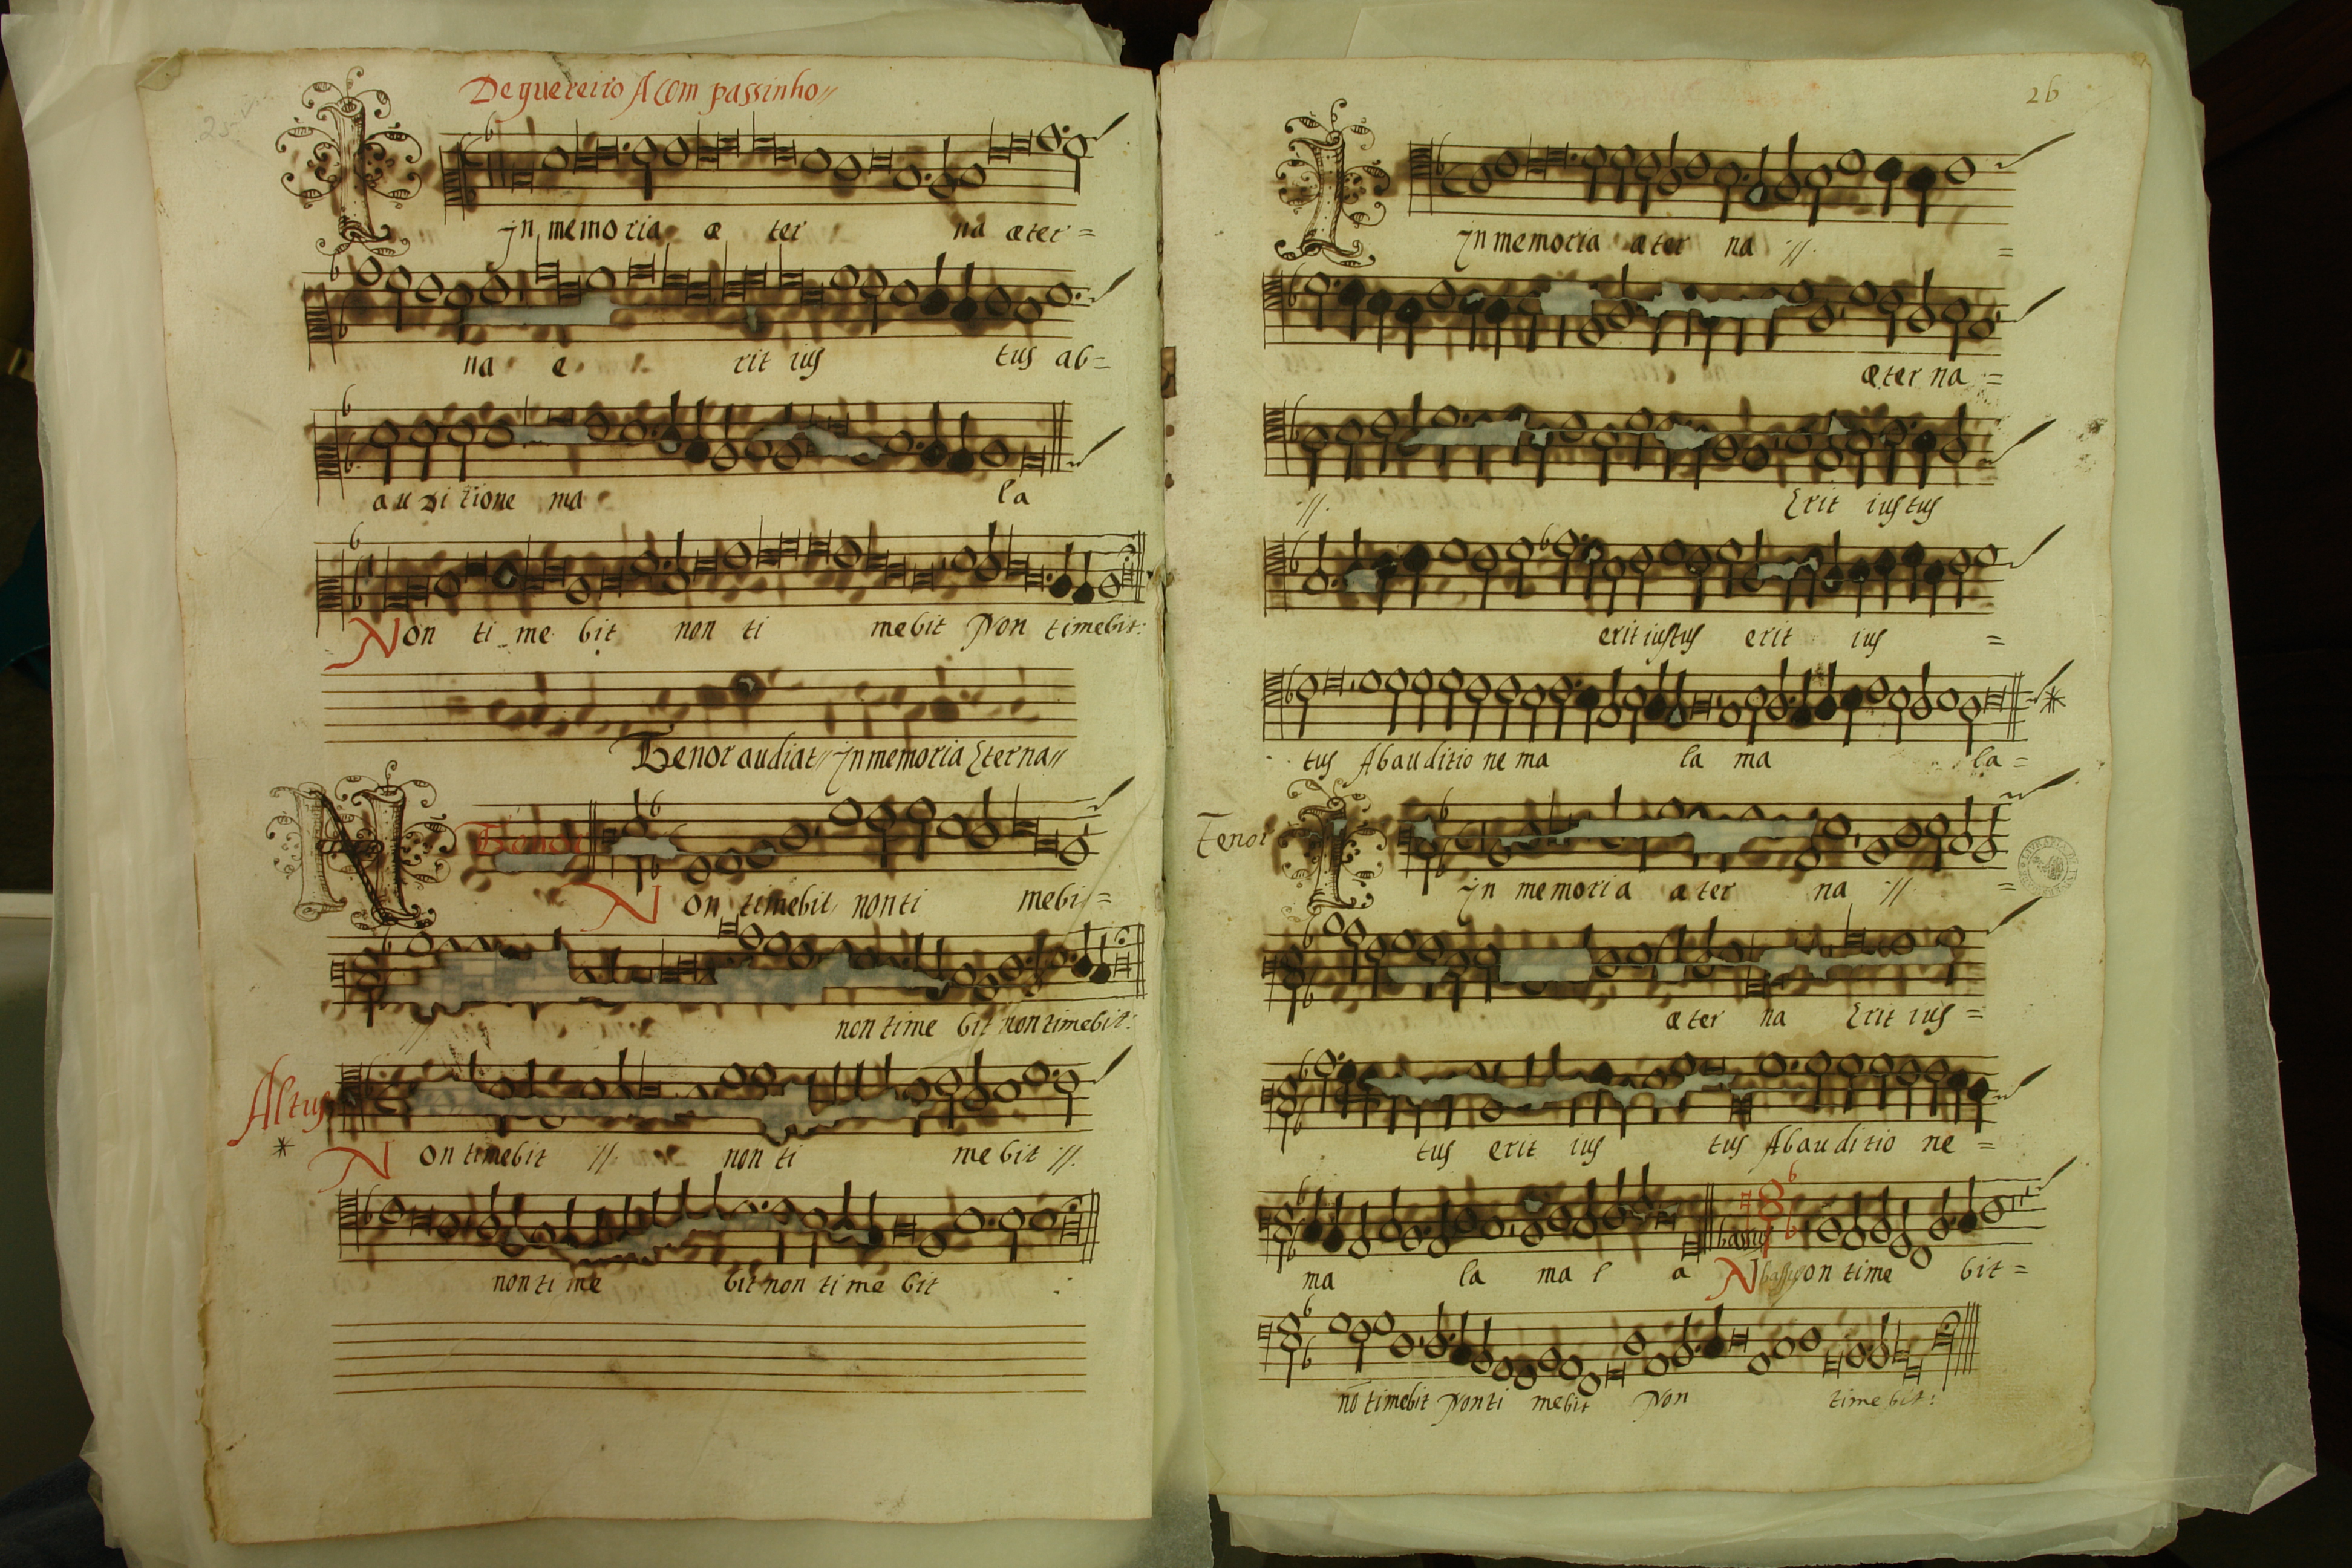 De guereiro A com passinho //
In memoria æ ter na æter =
na e rit ius tus ab =
auditione ma la
Non ti me bit non ti mebit Non timebit:
Tenor audiat // In memoria Eterna //
Tenor
Non timebit non ti mebit =
// non time bit non timebit:
Altus
Non timebit // non ti me bit //
non ti me bit non ti me bit :
26
In memoria æter na // =
æter na =
// Erit iustus
erit iustus erit ius =
tus Ab auditio ne ma la ma la =
Tenor
In memoria æ ter na // =
æ ter na Erit ius =
tus erit ius tus Ab auditio ne =
bassus
ma la ma l a Non time bit =
nō timebit Non ti mebit Non time bit: